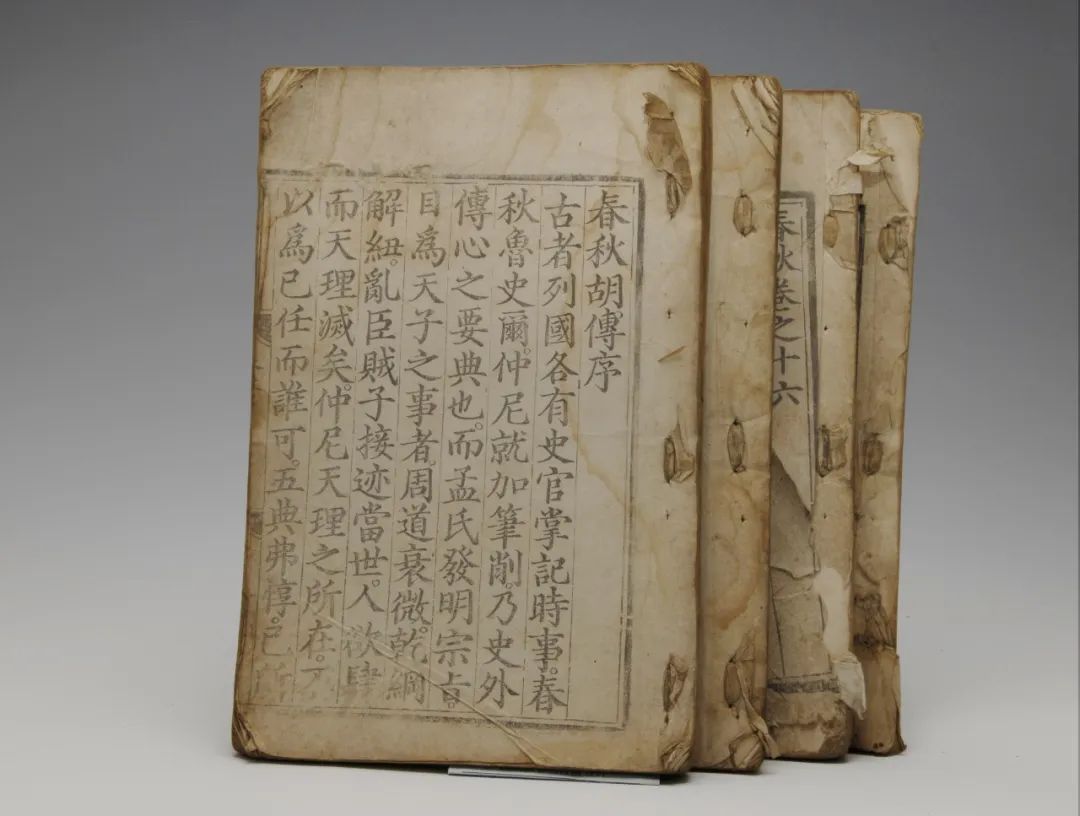 春秋胡傳序
古者列國各有史官掌記時事。春
秋魯史爾。仲尼就加筆削。乃史外
傳心之要典也。而孟氏發明宗㫖。
目爲天子之事者。周道衰微。乾綱
解紐。亂臣賊子接迹當世。人欲肆
而天理滅矣。仲尼天理之所在。不
以爲己任而誰可。五典弗惇。己所
春秋卷之十六